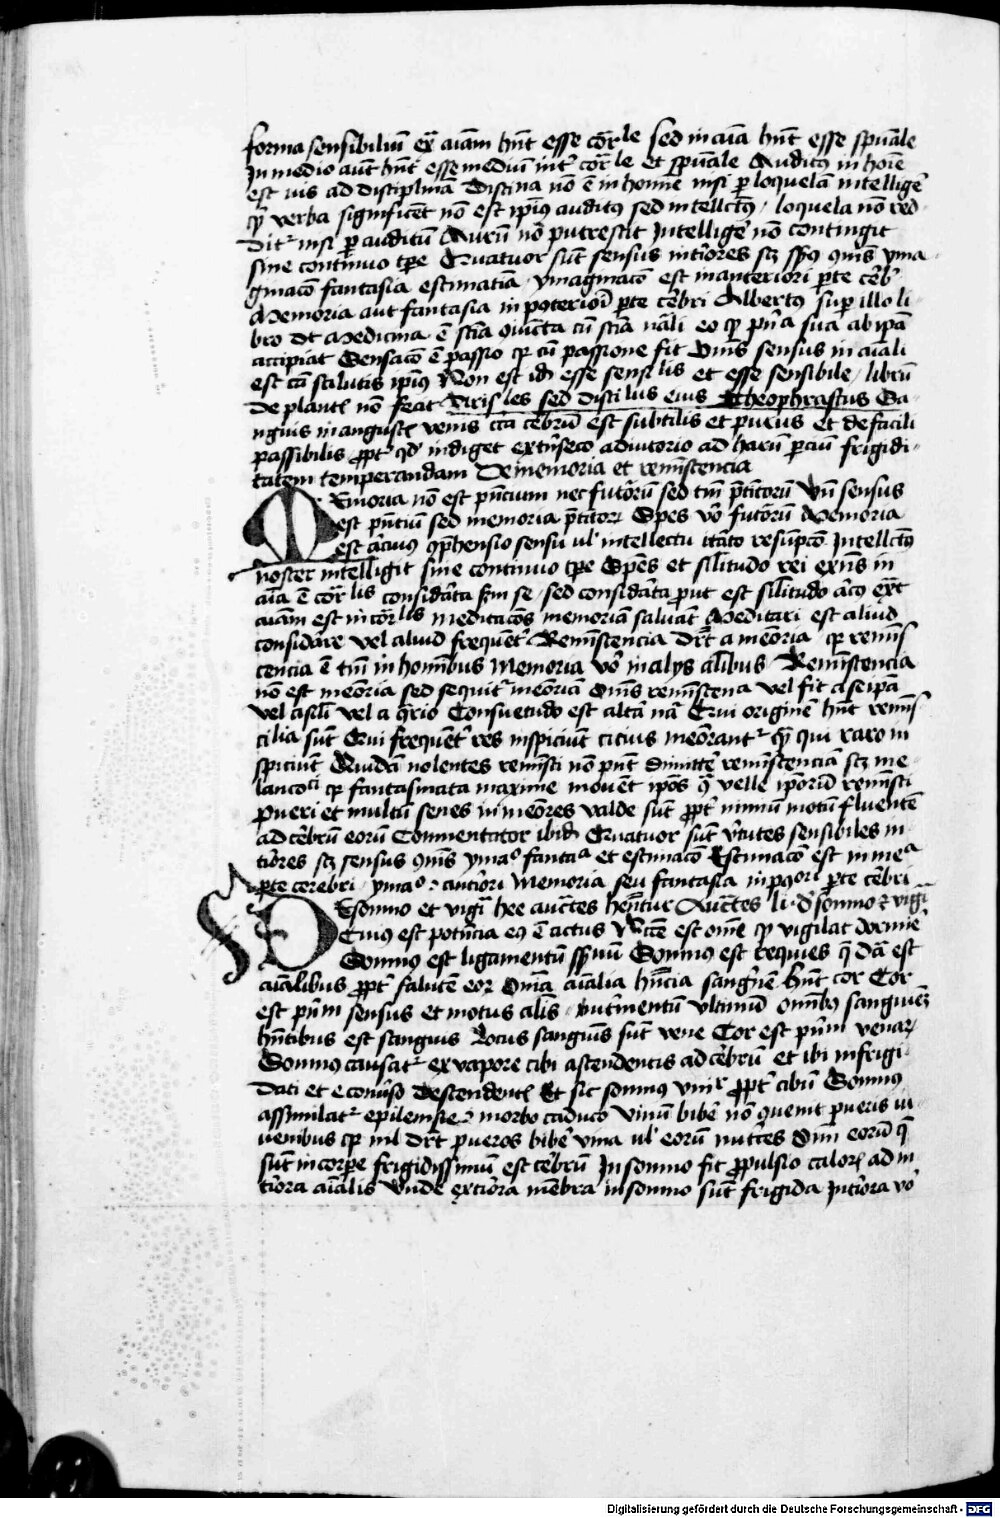 forma sensibiliũ ex̃ aiãm hñt esse cõrle sed in aĩa hñt esse spũale
In medio aũt hñt esse mediũ int̾ cõrle et spũale Auditꝰ in hoĩe
est uis ad disciplinã Disciplina nõ ẽ in homine nisi ꝑ loquelã intelligẽ
ꝙ verba significẽt nõ est ip̃iꝰ auditꝰ sed intellectꝰ loquela nõ red
dit᷑ nisi ꝑ auditũ Aurũ nõ putrescit Intelligẽ nõ contingit
sine continuo tp̃e Quatuor sũt sensus int̾iores sꝫ sp̃ꝰ ꝯmũis yma
ginacõ fantasia estimatia ymaginacõ est in anteriori ꝑte cẽbr̃
Memoria aut fantasia in posteriori ꝑte cẽbri Albertꝰ suꝑ illo li
bro dt Medicina ẽ sciã ꝯiũcta cũ sciã nãli eo ꝙ pñ̃a sua ab ip̃a
accipiat Sensacõ ẽ passio qꝛ cũ passione fit Om̃is sensus in aiãli
est cã salutis ip̃iꝰ Non est idẽ esse sensilis et esse sensibile librũ
de plantꝭ nõ fecit Arisles sed discilus eius Theophrastus Sa
nguis in angustꝭ venis circa cẽbrũ est subtilis et purus et de facili
passibilis ꝓpt̾ qd̾ indiget ext̾nseco adiutorio ad harũ ꝑciũ frigidi
tatem temperandam De memoria et reminiscencia
MEmoria nõ est pñcium nec futũrorũ sed tm̃ p̃titorũ Un̄ sensus
est pñciũ sed memoria p̃titoꝝ Spes vo᷒ futũrorũ Memoria
est alicuius ꝯp̃hensio sensu ul̾ intellectu itãto resũpcõ Intellectꝰ
noster intelligit sine continuo tp̃e Spẽs et silitudo rei exñs in
aĩa ẽ cõrlis considãta ẜm se sed considãta prout est silitudo alicꝰ ext̾
aiãm est incõrlis meditacõs memoriam saluãt Meditari est aliud
considãre vel aliud frequent̾ Reminiscencia drt̃ a meõria qꝛ remis
cencia ẽ tm̃ in hominibus Memoria vo᷒ in alijs aĩalibus Reminiscencia
nõ est meõria sed sequit᷑ meõriã Om̃is reminiscencia vel fit a seip̃a
vel a sili vel a ꝯ̃rio Consuetudo est alt̃a nã Qui originẽ hñt remis
cilia sũt Qui frequent̾ res inspiciũt cicius meõrant᷑ qᷓꝫ qui raro in
spiciũt Quidã nolentes reminisci nõ pñt dimitte reminiscenciã sꝫ me
lancolici qꝛ fantasmata maxime mouẽt ip̃os ꝯ̃ velle ip̃orũ reminisci
Pueri et multũ senes inmeõres valde sũt ꝓpt̾ nimiũ motũ fluentẽ
ad cẽbrũ eorũ Commentator ibidẽ Quatuor sũt ṽtutes sensibiles in
t̾iores sꝫ sensus ꝯmũis ymaº fantaᵃ et estimacõ Estimacõ est in meᵃ
ꝑte cerebri ymaº in ant̾iori Memoria seu fantasia in posteriori ꝑte cẽbri
DE somno et vigiᷓ hee auctẽs hẽntur Auctẽs li. de sõmno et vigi
Cuius est potñcia eꝰ ẽ actus Nccẽ est om̃e ꝙ vigilat dormire
Somnꝰ est ligamentũ sensuũ Somnꝰ est requies que dã est
aiãlibus ꝓpt̾ salutẽ eoꝝ Om̃ia aiãlia hñcia sangᵒnẽ hñt cor Cor
est pñm sensus et motus aĩalis nutimentũ ultimũ omnibꝰ sanguiẽ
hñtibus est sanguis Locus sanguis sũt vene Cor est pñm venaꝝ
Somnꝰ causat᷑ ex vapore cibi ascendentis ad cẽbrũ et ibi infrigi
dati et e conũso descendentꝭ Et sic somnus venit ꝓpt̾ cibũ Somnus
assimilat᷑ epilemsie i. morbo caduco Vinũ bibẽ nõ ꝯuenit pueris iu
uenibus qꝛ nil drt̃ pueros bibẽ vina ul̾ eorũ nutrices Om̃i eorũ que
sũt in corꝑe frigidissimũ est cẽbrũ In somno fit ꝓpulsio calorꝭ ad in
t̾iora aiãlis Unde ext̾iora mẽbra in somno sũt frigida Int̾iora vo᷒
Digitalisierung gefördert durch die Deutsche Forschungsgemeinschaft - DFG